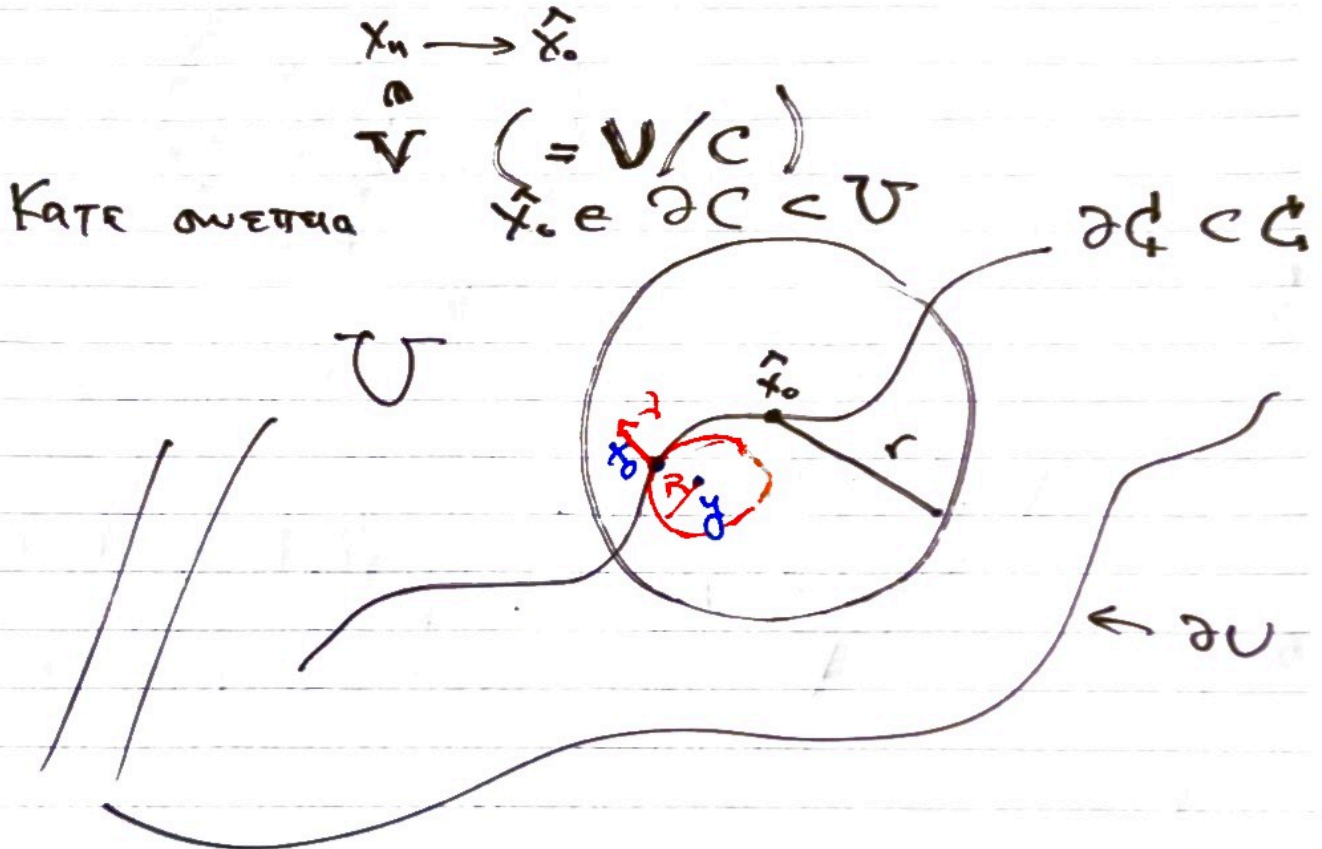 xₙ → x̂₀
∩
V (= U/C)
Κατε συνεπεια x̂₀ ∈ ∂C ⊂ U
∂C ⊂ C
U
x̂₀
r
x₀
R
y
← ∂U